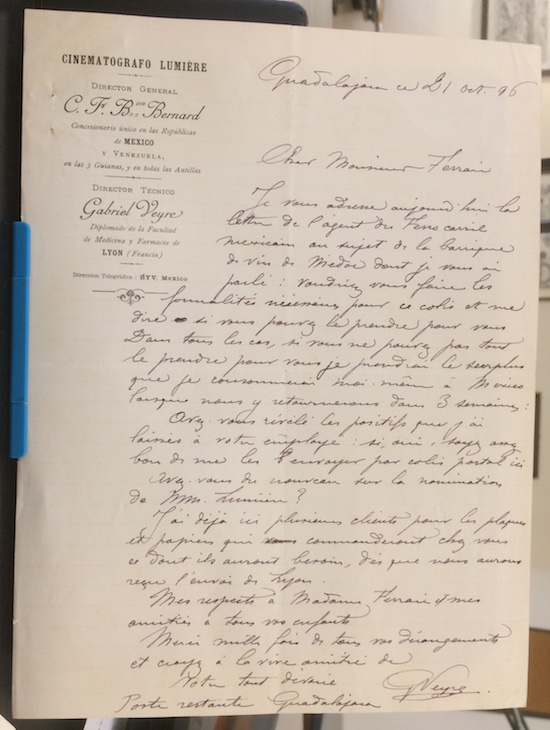 CINEMATOGRAFO LUMIÈRE
DIRECTOR GENERAL
C. Fd. Bon Bernard
Concesionario único en las Repúblicas
de MEXICO
Y VENEZUELA,
en las 3 Guianas, y en todas las Antillas
DIRECTOR TÉCNICO
Gabriel Veyre
Diplomado de la Facultad
de Medicina y Farmacia de
LYON (Francia)
Direccion Telegráfica : BYV. Mexico
Guadalajara ce 21 oct. 96
Cher Monsieur Ferrair
Je vous adresse aujourd'hui la
lettre de l'agent du Ferro carril
mexicano au sujet de la barrique
de vin de Medoc dont je vous ai
parlé : voudriez vous faire les
formalités nécessaires pour ce colis et me
dire si vous pouvez le prendre pour vous
Dans tous les cas, si vous ne pouvez pas tout
le prendre pour vous je prendrai le surplus
que je consommerai moi-même à Mexico
lorsque nous y retournerons dans 3 semaines.
Avez-vous les positifs que j'ai
laissés à votre employé : si, oui, soyez assez
bon de me les envoyer par colis postal ici
Avez-vous du nouveau sur la nomination
de Mm. Lumière?
J'ai déjà ici plusieurs clients pour les plaques
et papiers qui commanderont chez vous
ce dont ils auront besoin, dès que vous aurez
reçu l'envoi de Lyon.
Mes respects à Madame Ferrair et mes
amitiés à tous vos enfants
Merci mille fois de tous vos dérangements
et croyez à la vive amitié de
Votre tout dévoué
GVeyre
Poste restante Guadalajara